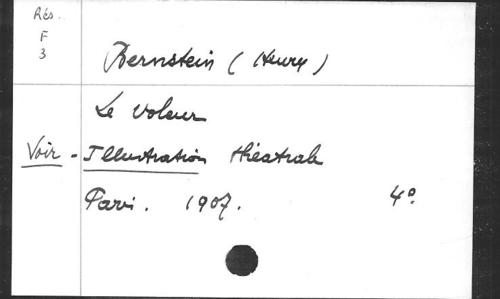 Rés.
F
3
Bernstein (Henry)
Le Voleur
Voir - Illustration théatrale
Paris. 1907. 4º